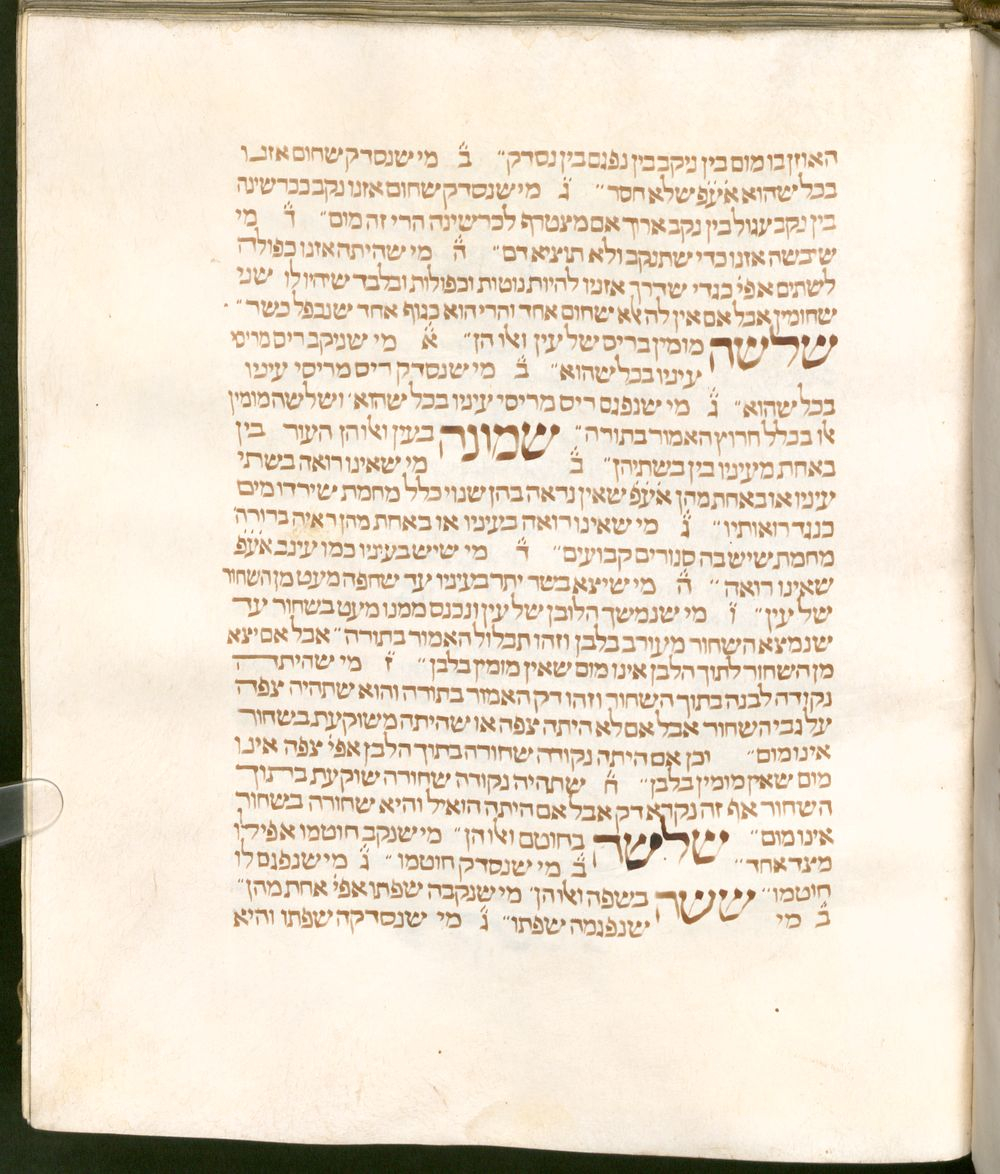 האוזן בו מום בין ניקב בין נפגם בין נסדק״ ב̈ מי שנסדק שחוס אזנו
בכל שהוא אע̈פ שלא חסר״ ג̈ מי שנסדק שחוס אזנו נקב ככרשינה
בין נקב עגול בין נקב ארוך אם מצטרף לכרשינה הרי זה מום״ ד̈ מי
שיבשה אזנו כדי שתנקב ולא תוציא דם״ ה̈ מי שהיתה אזנו כפולה
לשתים אפי׳ בגדי שדרך אזניו להיות נוטות וכפולות ובלבד שיהיו לו שני
שחוסין אבל אם אין לה אלא שחוס אחד והרי הוא כגוף אחד שנכפל כשר״
שלשה מומין בריס של עין ואלו הן״ א̈ מי שניקב ריס מריסי
עיניו בכל שהוא״ ב̈ מי שנסדק ריס מריסי עיניו
בכל שהוא״ ג̈ מי שנפגם ריס מריסי עיניו בכל שהוא׳ ושלשה מומין
אלו בכלל חרוץ האמור בתורה״ שמונה בעין ואלו הן העור בין
באחת מעיניו בין בשתיהן״ ב̈ מי שאינו רואה בשתי
עיניו או באחת מהן אע̈פ שאין נראה בהן שנוי כלל מחמת שירדו מים
כנגד רואותיו״ ג̈ מי שאינו רואה בעיניו או באחת מהן ראיה ברורה
מחמת שיש בה סנורים קבועים״ ד̈ מי שיש בעיניו כמו עינב אע̈פ
שאינו רואה״ ה̈ מי שיצא בשר יתר בעיניו עד שחפה מעט מן השחור
של עין״ ו̈ מי שנמשך הלובן של עין ונכנס ממנו מעט בשחור עד
שנמצא השחור מעורב בלבן וזהו תבלול האמור בתורה״ אבל אם יצא
מן השחור לתוך הלבן אינו מום שאין מומין בלבן״ ז̈ מי שהיתה
נקודה לבנה בתוך השחור וזהו דק האמור בתורה והוא שתהיה צפה
על גבי השחור אבל אם לא היתה צפה או שהיתה משוקעת בשחור
אינו מום״ וכן אם היתה נקודה שחורה בתוך הלבן אפי׳ צפה אינו
מום שאין מומין בלבן״ ח̈ שתהיה נקודה שחורה שוקעת בתוך
השחור אף זה נקרא דק אבל אם היתה הואיל והיא שחורה בשחור
אינו מום״ שלשה בחוטם ואלו הן״ מי שנקב חוטמו אפילו
מצד אחד״ ב̈ מי שנסדק חוטמו״ ג̈ מי שנפגם לו
חוטמו״ ששה בשפה ואלו הן״ מי שנקבה שפתו אפי׳ אחת מהן״
ב̈ מי שנפגמה שפתו״ ג̈ מי שנסדקה שפתו והיא